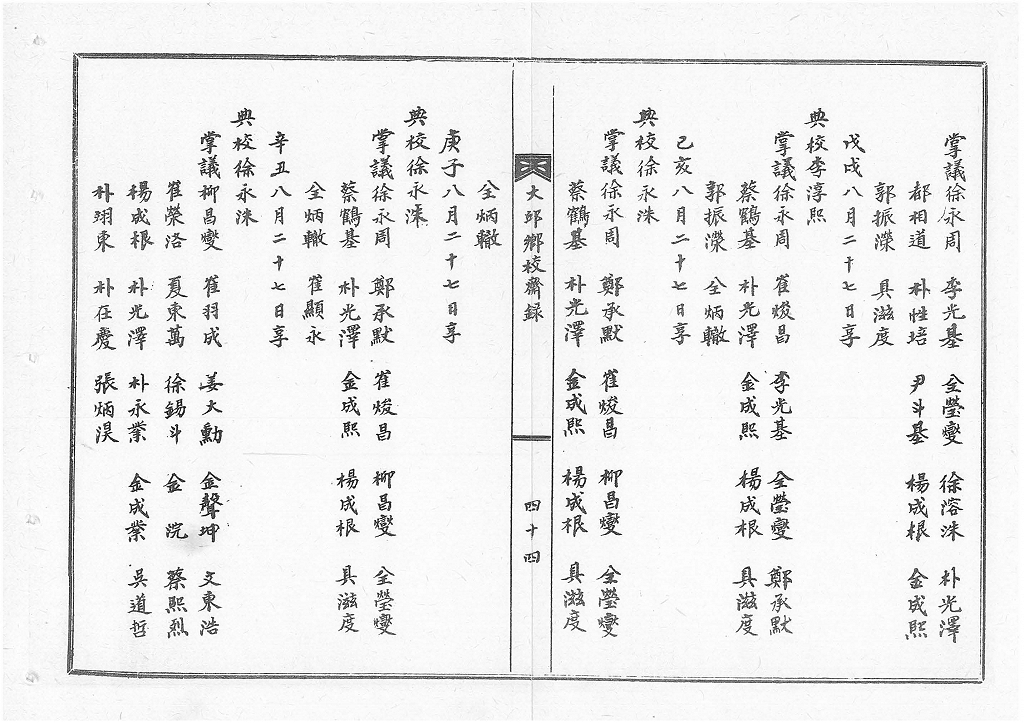 掌議徐永周 李光基 全瑩燮 徐溶洙 朴光澤
都相道 朴性培 尹斗基 楊成根 金成熙
郭振濚 具滋度
戊戌八月二十七日享
典校李淳熙
掌議徐永周 崔焌昌 李光基 全瑩燮 鄭承默
蔡鶴基 朴光澤 金成熙 楊成根 具滋度
郭振濚 全炳轍
己亥八月二十七日享
典校徐永洙
掌議徐永周 鄭承默 崔焌昌 柳昌燮 全瑩燮
蔡鶴基 朴光澤 金成熙 楊成根 具滋度
大邱鄉校齋錄
四十四
全炳轍
庚子八月二十七日享
典校徐永洙
掌議徐永周 鄭承默 崔焌昌 柳昌燮 全瑩燮
蔡鶴基 朴光澤 金成熙 楊成根 具滋度
全炳轍 崔顯永
辛丑八月二十七日享
典校徐永洙
掌議柳昌燮 崔羽成 姜大勳 金聲坤 文東浩
崔榮洛 夏東萬 徐錫斗 金浣 蔡熙烈
楊成根 朴光澤 朴永業 金成業 吳道哲
朴羽東 朴在慶 張炳淏